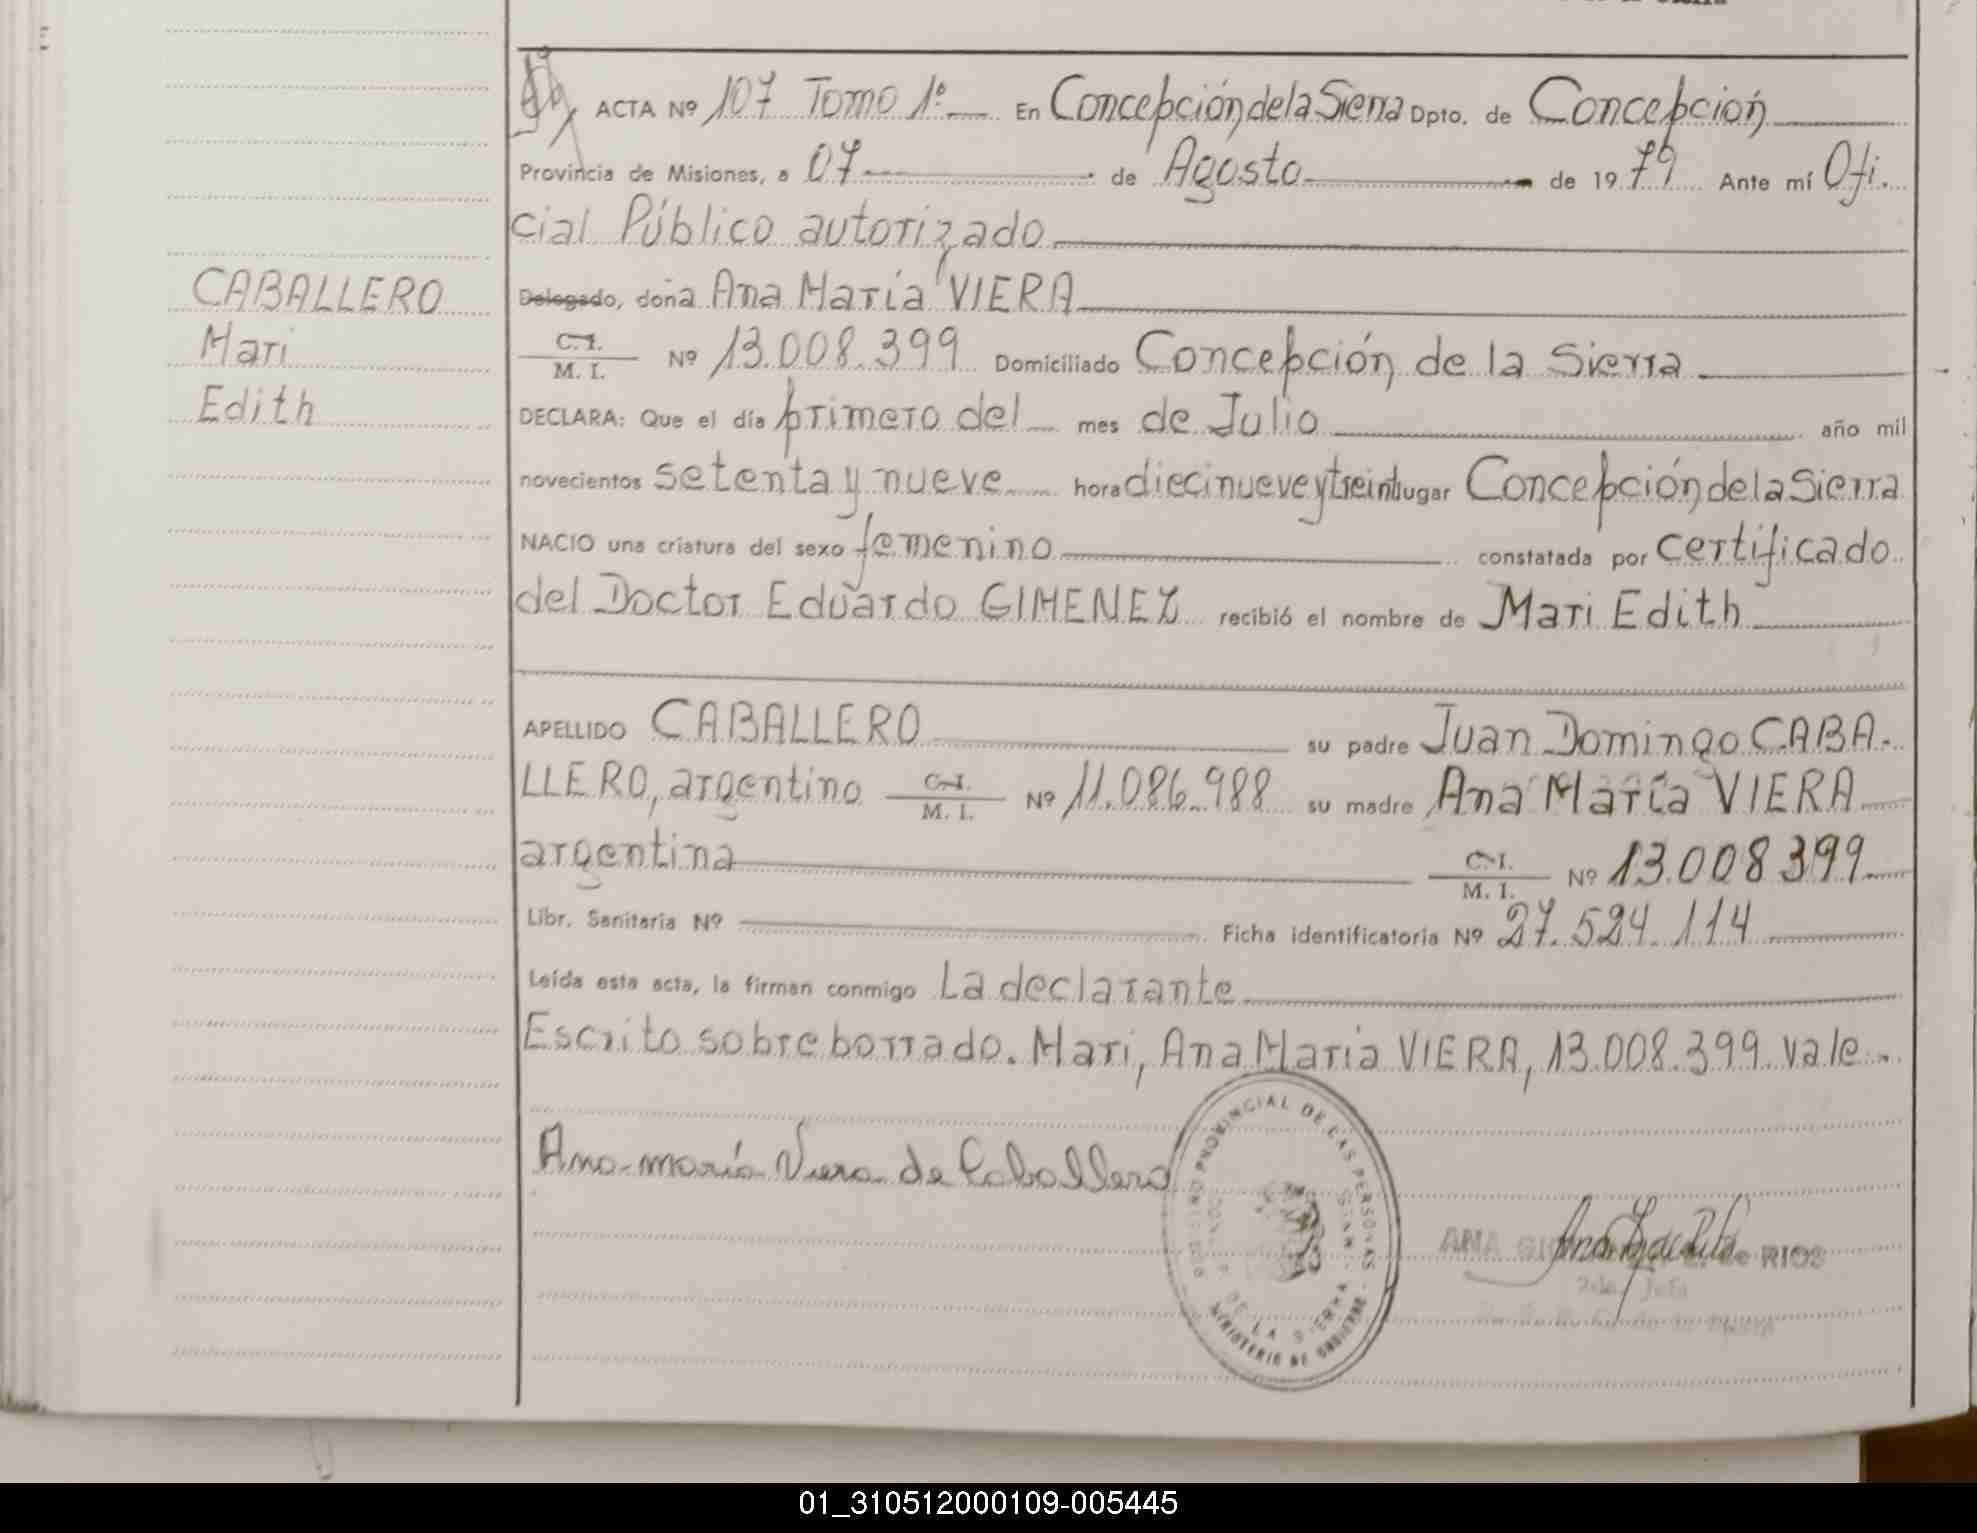 ACTA Nº 107 Tomo 1º En Concepción de la Sierra Dpto. de Concepción
Provincia de Misiones, a 07 de Agosto de 1979 Ante mí Ofi.
cial Público autorizado
CABALLERO
Mari
Edith
Delegado, doña Ana María VIERA
C.I.
M. I. Nº 13.008.399 Domiciliado Concepción de la Sierra
DECLARA: Que el día primero del mes de Julio año mil
novecientos setenta y nueve hora diecinueve y treinta lugar Concepción de la Sierra
NACIO una criatura del sexo femenino constatada por certificado
del Doctor Eduardo GIMENEZ recibió el nombre de Mari Edith
APELLIDO CABALLERO su padre Juan Domingo CABA-
LLERO, argentino C.I.
M. I. Nº 11.086.988 su madre Ana María VIERA
argentina C.I.
M. I. Nº 13.008 399
Libr. Sanitaria Nº Ficha identificatoria Nº 27.524.114
Leída esta acta, la firman conmigo La declarante
Escrito sobre borrado. Mari, Ana Maria VIERA, 13.008.399. vale.
Ana maría Viera de Caballero
PROVINCIAL DE LAS PERSONAS
DE LA SIERRA
MINISTERIO DE GOBIERNO
ANA de RIOS
2da. Jefa
01_310512000109-005445